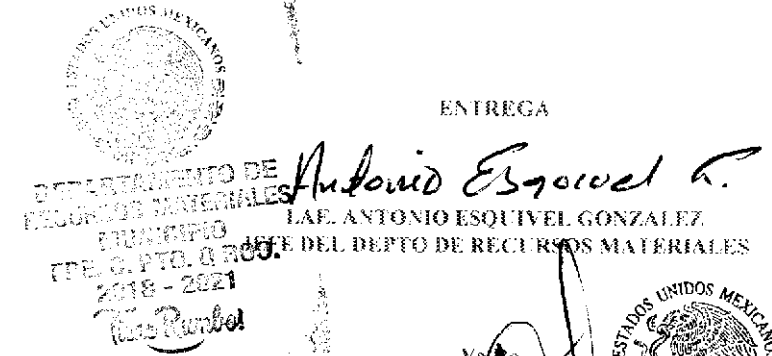 ESTADOS UNIDOS MEXICANOS
ENTREGA
Antonio Esquivel G.
LAE. ANTONIO ESQUIVEL GONZALEZ
JEFE DEL DEPTO DE RECURSOS MATERIALES
DEPARTAMENTO DE
RECURSOS MATERIALES
MUNICIPIO
FPE. C. PTO. Q ROO.
2018 - 2021
ESTADOS UNIDOS MEXICANOS